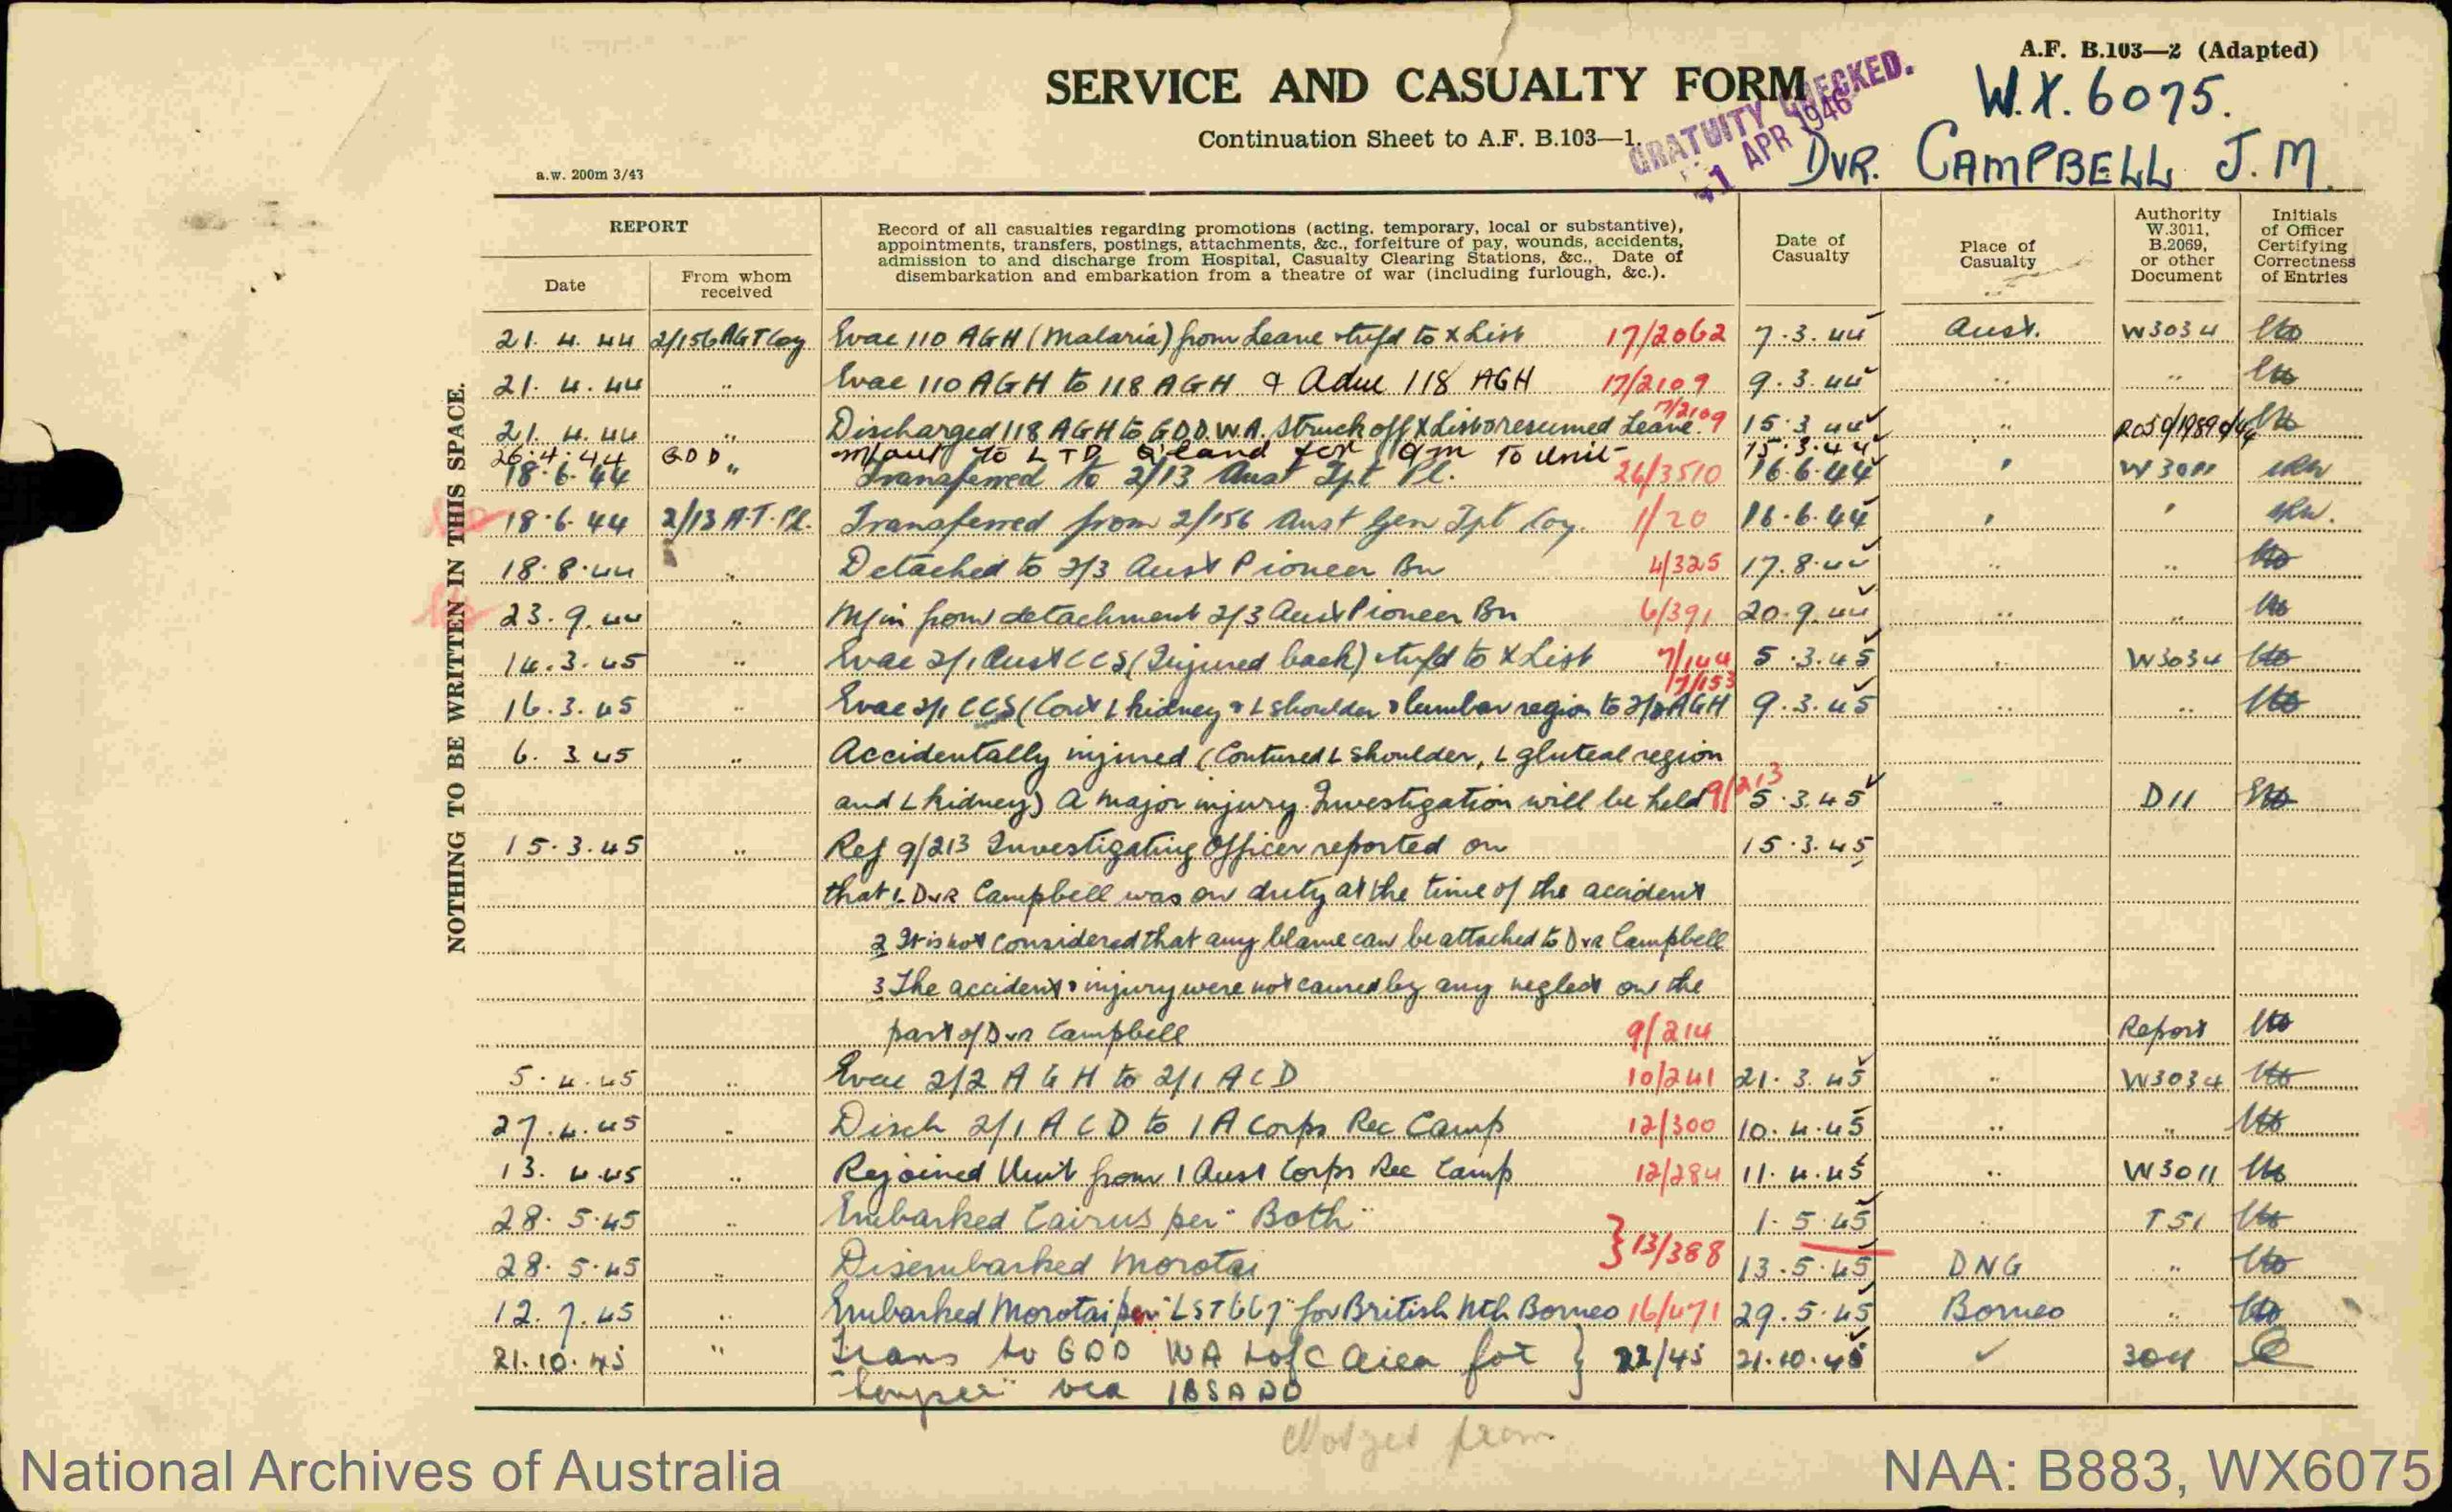 A.F. B.103—2 (Adapted)
SERVICE AND CASUALTY FORM
W.X. 6075.
Continuation Sheet to A.F. B.103—1.
GRATUITY CHECKED.
1 APR 1946
DVR. CAMPBELL J.M.
a.w. 200m 3/43
NOTHING TO BE WRITTEN IN THIS SPACE.
REPORT
Date
From whom received
Record of all casualties regarding promotions (acting, temporary, local or substantive),
appointments, transfers, postings, attachments, &c., forfeiture of pay, wounds, accidents,
admission to and discharge from Hospital, Casualty Clearing Stations, &c., Date of
disembarkation and embarkation from a theatre of war (including furlough, &c.).
Date of Casualty
Place of Casualty
Authority W.3011, B.2069, or other Document
Initials of Officer Certifying Correctness of Entries
21. 4. 44 2/156 AGT Coy Evac 110 AGH (Malaria) from Leave & tsfd to X List 17/2062 7.3.44 Aust. W3034
21. 4. 44 " Evac 110 AGH to 118 AGH & Adm 118 AGH 17/2109 9.3.44 " "
21. 4. 44 " Discharged 118 AGH to GDD. W.A. Struck off X List & resumed Leave. 17/2109 15.3.44 "
26.4.44 GDD m/out to LTD Q'land for 15.3.44
to Unit
18.6.44 " Transferred to 2/13 Aust Tpt Pl. 26/3510 16.6.44 " W3011
18.6.44 2/13 A.T.Pl. Transferred from 2/156 Aust Gen Tpt Coy. 1/20 16.6.44 " "
18.8.44 " Detached to 2/3 Aust Pioneer Bn 4/325 17.8.44 " "
23.9.44 " M/in from detachment 2/3 Aust Pioneer Bn 6/391 20.9.44 " "
14.3.45 " Evac 2/1 Aust CCS (Injured back) & tsfd to X List 7/144 5.3.45 " W3034
16.3.45 " Evac 2/1 CCS (Cont L kidney & L shoulder & lumbar region to 2/2 AGH 7/153 9.3.45 " "
6. 3.45 " Accidentally injured (Contused L shoulder, L gluteal region
and L kidney) A major injury. Investigation will be held 9/213 5.3.45 " D11
15.3.45 " Ref 9/213 Investigating Officer reported on 15.3.45
that 1. Dvr Campbell was on duty at the time of the accident
2 It is not considered that any blame can be attached to Dvr Campbell
3 The accident & injury were not caused by any neglect on the
part of Dvr Campbell 9/214 " Report
5.4.45 " Evac 2/2 AGH to 2/1 ACD 10/241 21.3.45 " W3034
27.4.45 " Disch 2/1 ACD to 1 A Corps Rec Camp 12/300 10.4.45 " "
13. 4.45 " Rejoined Unit from 1 Aust Corps Rec Camp 12/284 11.4.45 " W3011
28. 5.45 " Embarked Cairns per "Both" } 13/388 1.5.45 " T51
28. 5.45 " Disembarked Morotai 13.5.45 DNG "
12. 7.45 " Embarked Morotai per "LST 667" for British Nth Borneo 16/471 29.5.45 Borneo "
21.10.45 " Trans to GDD WA L of C area for } 22/45 21.10.45 3011
via 1BSADD
National Archives of Australia
NAA: B883, WX6075